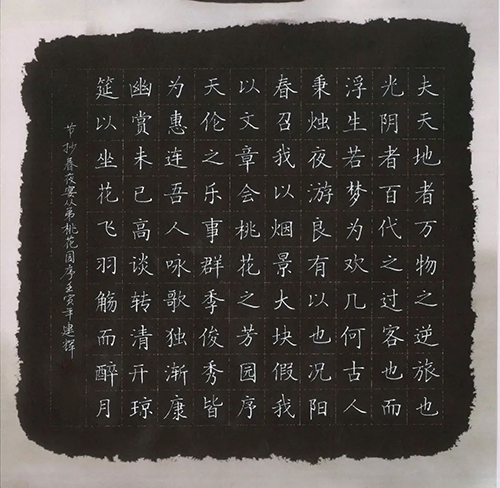 夫天地者万物之逆旅也
光阴者百代之过客也而
浮生若梦为欢几何古人
秉烛夜游良有以也况阳
春召我以烟景大块假我
以文章会桃花之芳园序
天伦之乐事群季俊秀皆
为惠连吾人咏歌独渐康
幽赏未已高谈转清开琼
筵以坐花飞羽觞而醉月
节抄春夜宴从弟桃花园序壬寅年建辉